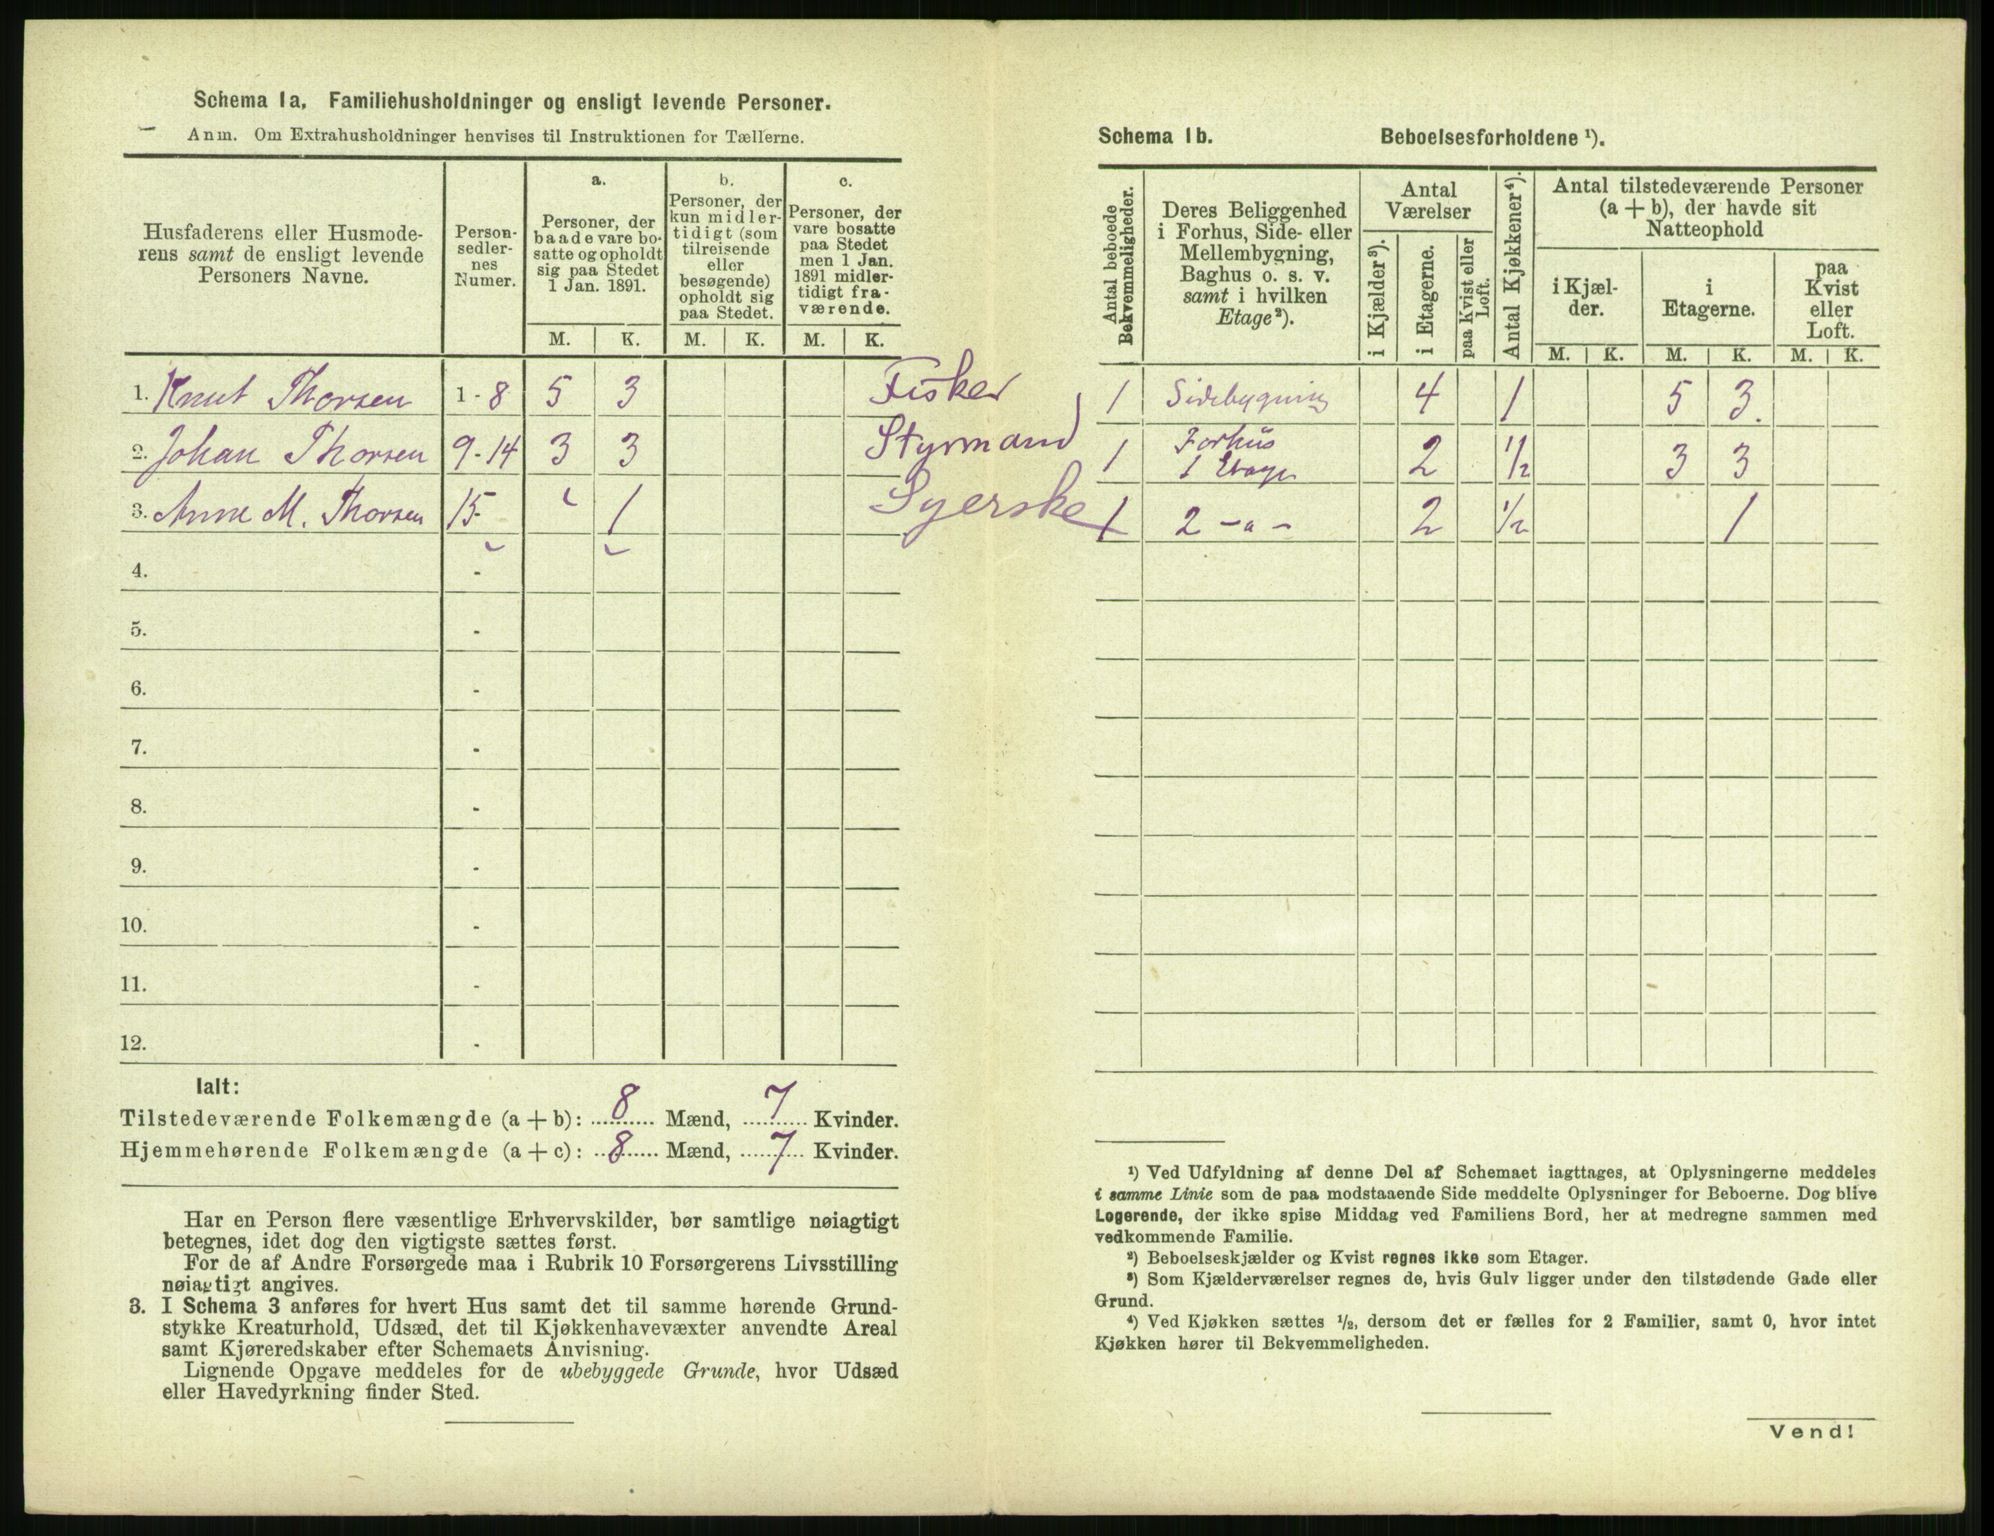 Schema 1a. Familiehusholdninger og ensligt levende Personer.
Anm. Om Extrahusholdninger henvises til Instruktionen for Tællerne.
Husfaderens eller Husmoderens samt de ensligt levende Personers Navne.
Person-sedler-nes Numer.
a. Personer, der baade vare bosatte og opholdt sig paa Stedet 1 Jan. 1891.
b. Personer, der kun midlertidigt (som tilreisende eller besøgende) opholdt sig paa Stedet.
c. Personer, der vare bosatte paa Stedet men 1 Jan. 1891 midlertidigt fraværende.
M. K. M. K. M. K.
1. Knut Thorsen 1 - 8 5 3 Fisker
2. Johan Thorsen 9 - 14 3 3 Styrmand
3. Anne M. Thorsen 15 - 1 Syerske
4. -
5. -
6. -
7. -
8. -
9. -
10. -
11. -
12. -
Ialt:
Tilstedeværende Folkemængde (a + b): 8 Mænd, 7 Kvinder.
Hjemmehørende Folkemængde (a + c): 8 Mænd, 7 Kvinder.
Har en Person flere væsentlige Erhvervskilder, bør samtlige nøiagtigt
betegnes, idet dog den vigtigste sættes først.
For de af Andre Forsørgede maa i Rubrik 10 Forsørgerens Livsstilling
nøiagtigt angives.
3. I Schema 3 anføres for hvert Hus samt det til samme hørende Grund-
stykke Kreaturhold, Udsæd, det til Kjøkkenhavevæxter anvendte Areal
samt Kjøreredskaber efter Schemaets Anvisning.
Lignende Opgave meddeles for de ubebyggede Grunde, hvor Udsæd
eller Havedyrkning finder Sted.
Schema 1b. Beboelsesforholdene ¹).
Antal beboede Bekvemmeligheder.
Deres Beliggenhed i Forhus, Side- eller Mellembygning, Baghus o. s. v. samt i hvilken Etage²).
Antal Værelser
i Kjælder³).
i Etagerne.
paa Kvist eller Loft.
Antal Kjøkkener⁴).
Antal tilstedeværende Personer (a + b), der havde sit Natteophold
i Kjælder.
i Etagerne.
paa Kvist eller Loft.
M. K. M. K. M. K.
1 Sidebygning 4 1 5 3
1 Forhus 1 Etage 2 1/2 3 3
1 2 -"- 2 1/2 1
¹) Ved Udfyldning af denne Del af Schemaet iagttages, at Oplysningerne meddeles
i samme Linie som de paa modstaaende Side meddelte Oplysninger for Beboerne. Dog blive
Logerende, der ikke spise Middag ved Familiens Bord, her at medregne sammen med
vedkommende Familie.
²) Beboelseskjælder og Kvist regnes ikke som Etager.
³) Som Kjælderværelser regnes de, hvis Gulv ligger under den tilstødende Gade eller
Grund.
⁴) Ved Kjøkken sættes ¹/₂, dersom det er fælles for 2 Familier, samt 0, hvor intet
Kjøkken hører til Bekvemmeligheden.
Vend!